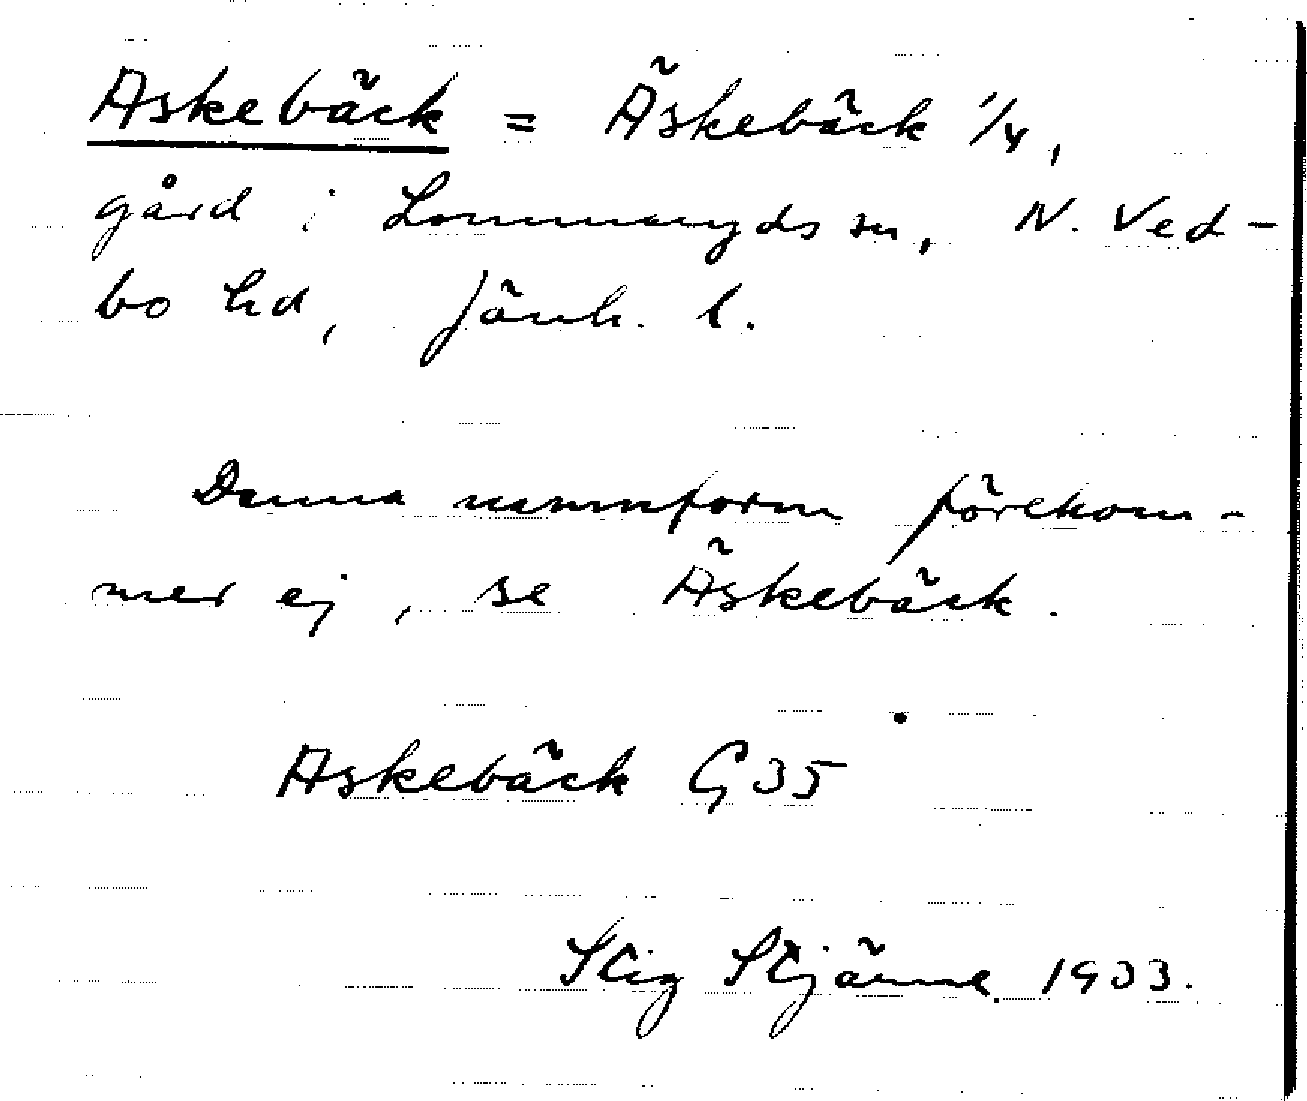 Askebäck = Äskebäck 1/4,
gård i Lommaryds sn, N. Ved-
bo hd, Jönk. l.
Denna namnform förekom-
mer ej, se Äskebäck.
Askebäck G 35
Stig Stjärne 1933.